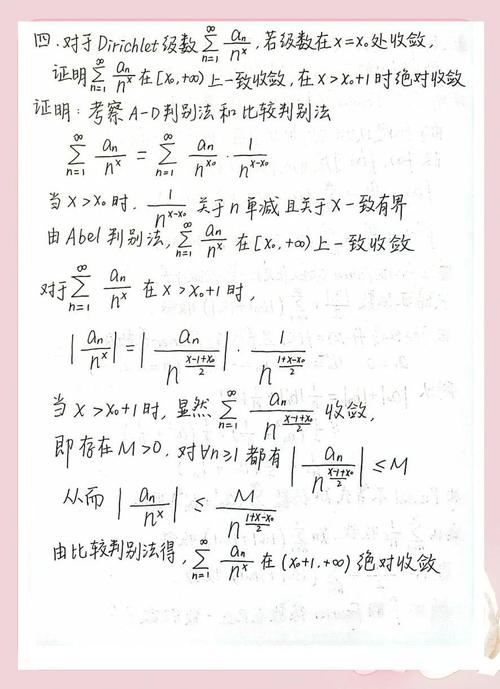 四.对于Dirichlet级数 $\sum_{n=1}^{\infty} \frac{a_n}{n^x}$,若级数在x=x₀处收敛,
证明 $\sum_{n=1}^{\infty} \frac{a_n}{n^x}$ 在[x₀,+∞)上一致收敛,在x>x₀+1时绝对收敛
证明:考察A-D判别法和比较判别法
$\sum_{n=1}^{\infty} \frac{a_n}{n^x} = \sum_{n=1}^{\infty} \frac{a_n}{n^{x_0}} \cdot \frac{1}{n^{x-x_0}}$
当x>x₀时, $\frac{1}{n^{x-x_0}}$ 关于n单减且关于x一致有界
由Abel判别法, $\sum_{n=1}^{\infty} \frac{a_n}{n^x}$ 在[x₀,+∞)上一致收敛
对于 $\sum_{n=1}^{\infty} \frac{a_n}{n^x}$ 在x>x₀+1时,
$\left|\frac{a_n}{n^x}\right| = \left|\frac{a_n}{n^{\frac{x-1+x_0}{2}}}\right| \cdot \frac{1}{n^{\frac{1+x-x_0}{2}}}$
当x>x₀+1时,显然 $\sum_{n=1}^{\infty} \frac{a_n}{n^{\frac{x-1+x_0}{2}}}$ 收敛,
即存在M>0,对∀n≥1都有 $\left|\frac{a_n}{n^{\frac{x-1+x_0}{2}}}\right| \leq M$
从而 $\left|\frac{a_n}{n^x}\right| \leq \frac{M}{n^{\frac{1+x-x_0}{2}}}$
由比较判别法得, $\sum_{n=1}^{\infty} \frac{a_n}{n^x}$ 在(x₀+1,+∞)绝对收敛